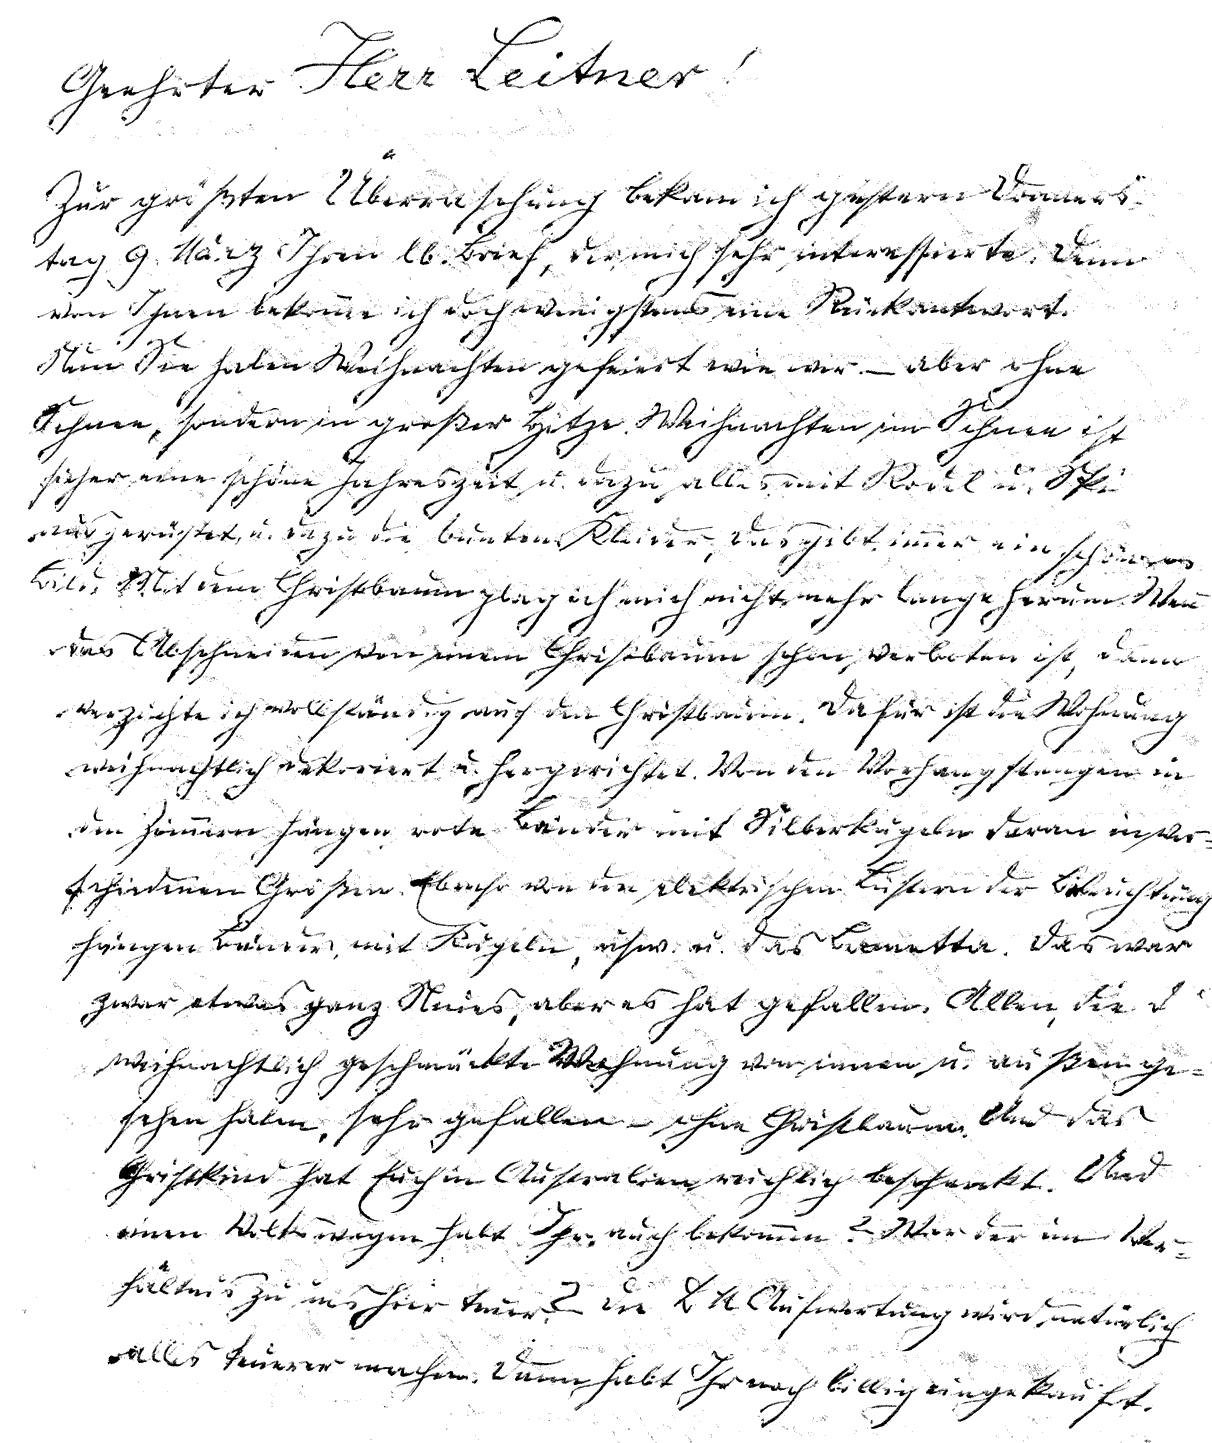 Geehrter Herr Leitner!
Zur größten Überraschung bekam ich gestern Donners-
tag 9. März Ihren lb. Brief, der mich sehr interessierte. Denn
von Ihnen bekomme ich doch wenigstens eine Rückantwort.
Nun Sie haben Weihnachten gefeiert wie wir – aber ohne
Schnee, sondern in großer Hitze. Weihnachten im Schnee ist
sicher eine schöne Jahreszeit u. dazu alles mit Rodel u. Ski
ausgerüstet, u. dazu die bunten Kleider, das gibt immer ein schönes
Bild. Mit dem Christbaum plag ich mich nicht mehr lange herum. Wenn
das Abschneiden von einem Christbaum schon verboten ist, dann
verzichte ich vollständig auf den Christbaum. Dafür ist die Wohnung
weihnachtlich dekoriert u. hergerichtet. Von den Vorhangstangen in
den Zimmern hängen rote Bänder mit Silberkugeln daran in ver-
schiedenen Größen. Ebenso von den elektrischen Lüstern der Beleuchtung
hängen Bänder, mit Kugeln, usw. u. das Lametta. Das war
zwar etwas ganz Neues, aber es hat gefallen. Allen, die d
weihnachtlich geschmückte Wohnung von innen u. außen ge-
sehen haben, sehr gefallen – ohne Christbaum. Und das
Christkind hat Euch in Australien reichlich beschenkt. Und
einen Volkswagen habt Ihr auch bekommen? War der im Ver-
hältnis zu uns hier teuer? – Die Aufwertung wird natürlich
alles teuerer machen. Dann habt Ihr noch billig eingekauft.